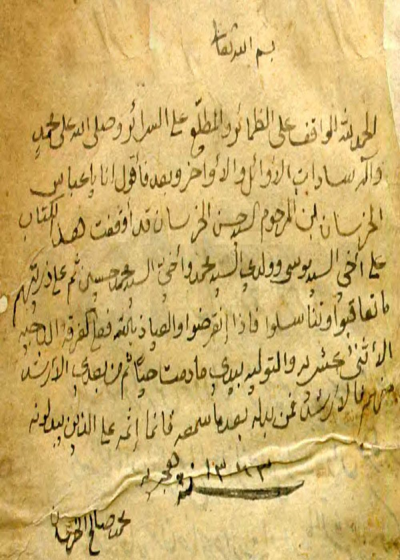 بسم الله تعالى
الحمد لله الواقف على الضمائر والمطلع على السرائر وصلى الله على محمد
وآله سادات الأوائل والأواخر وبعد فأقول انا يا عباس
الخرسان ابن المرحوم السيد حسن الخرسان قد أوقفت هذا الكتاب
على أخي السيد موسى وولدي السيد محمد وأخي السيد محمد حسين ثم على ذريتهم
ما تعاقبوا وتناسلوا فاذا إنقرضوا والعياذ بالله فعلى الفرقة الناجية
الأثنى عشريه والتوليه بيدي ما دمت حياً ثم من بعدي الأرشد
منهم فالأرشد فمن بدله بعد ما سمعه فانما إثمه على الذين يبدلونه
١٣٤٣ هجريه
محمد صالح الخرسان